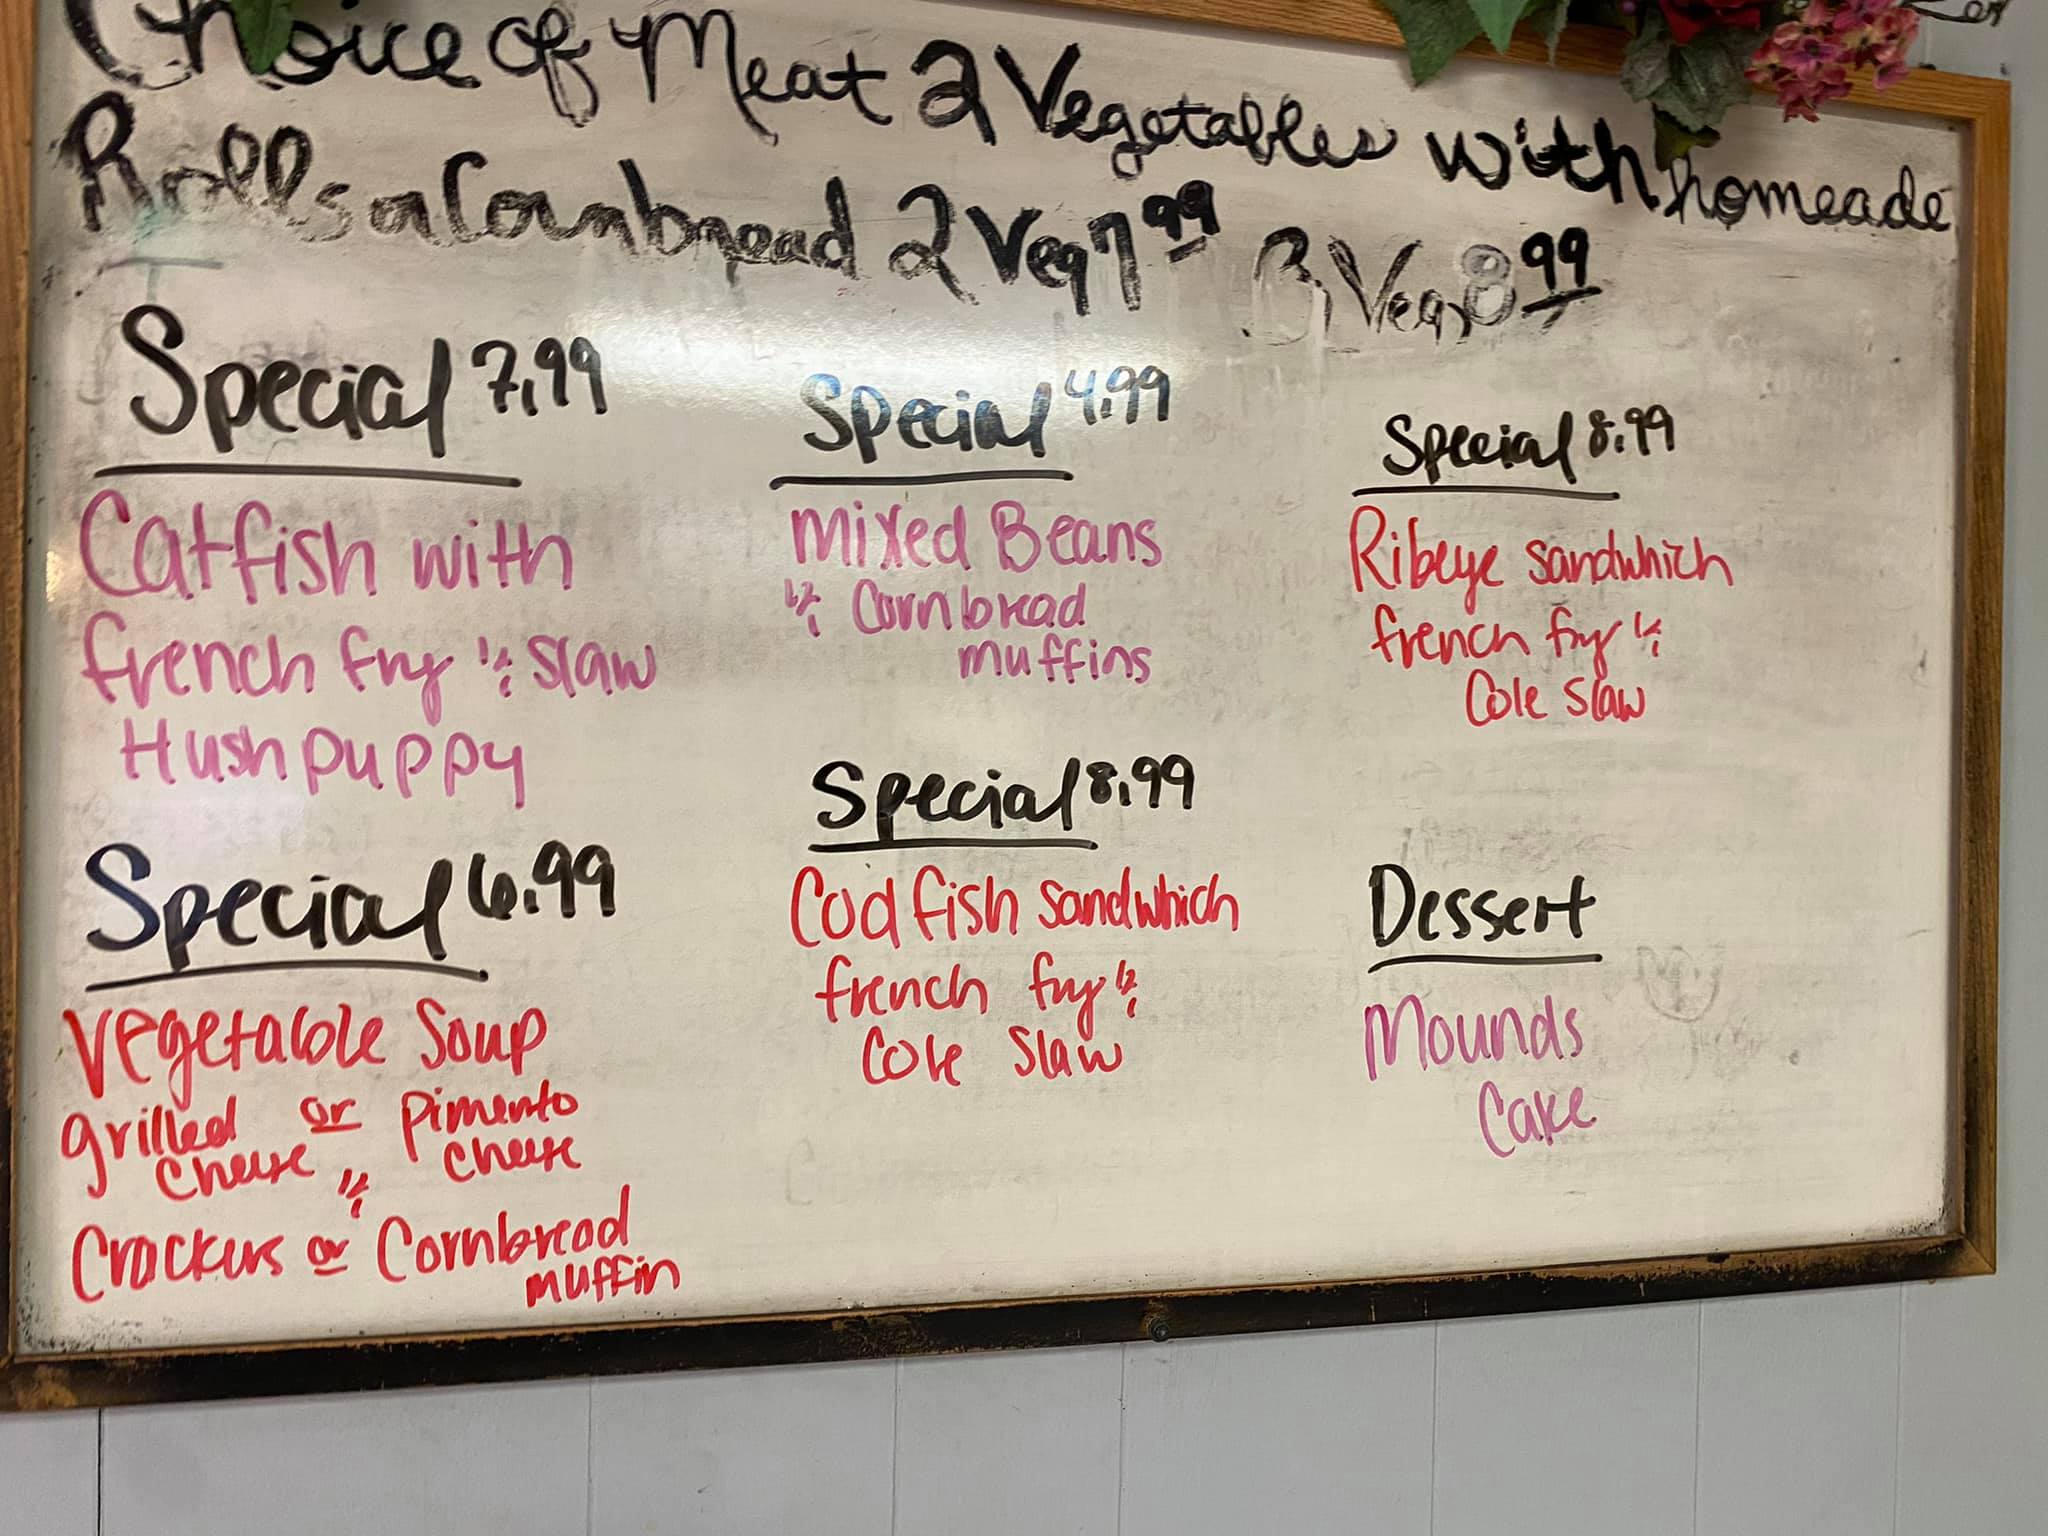 Choice of Meat 2 Vegetables with homeade
Rolls or Cornbread 2 Veg 7 99 3 Veg 8 99
Special 7.99
Catfish with
french fry & slaw
Hushpuppy
Special 6.99
Vegetable Soup
grilled or Pimento
cheese & cheese
Crackers or Cornbread
muffin
Special 4.99
Mixed Beans
& Cornbread
muffins
Special 8.99
Cod fish sandwhich
french fry &
Cole Slaw
Special 8.99
Ribeye sandwhich
french fry &
Cole Slaw
Dessert
Mounds
Cake